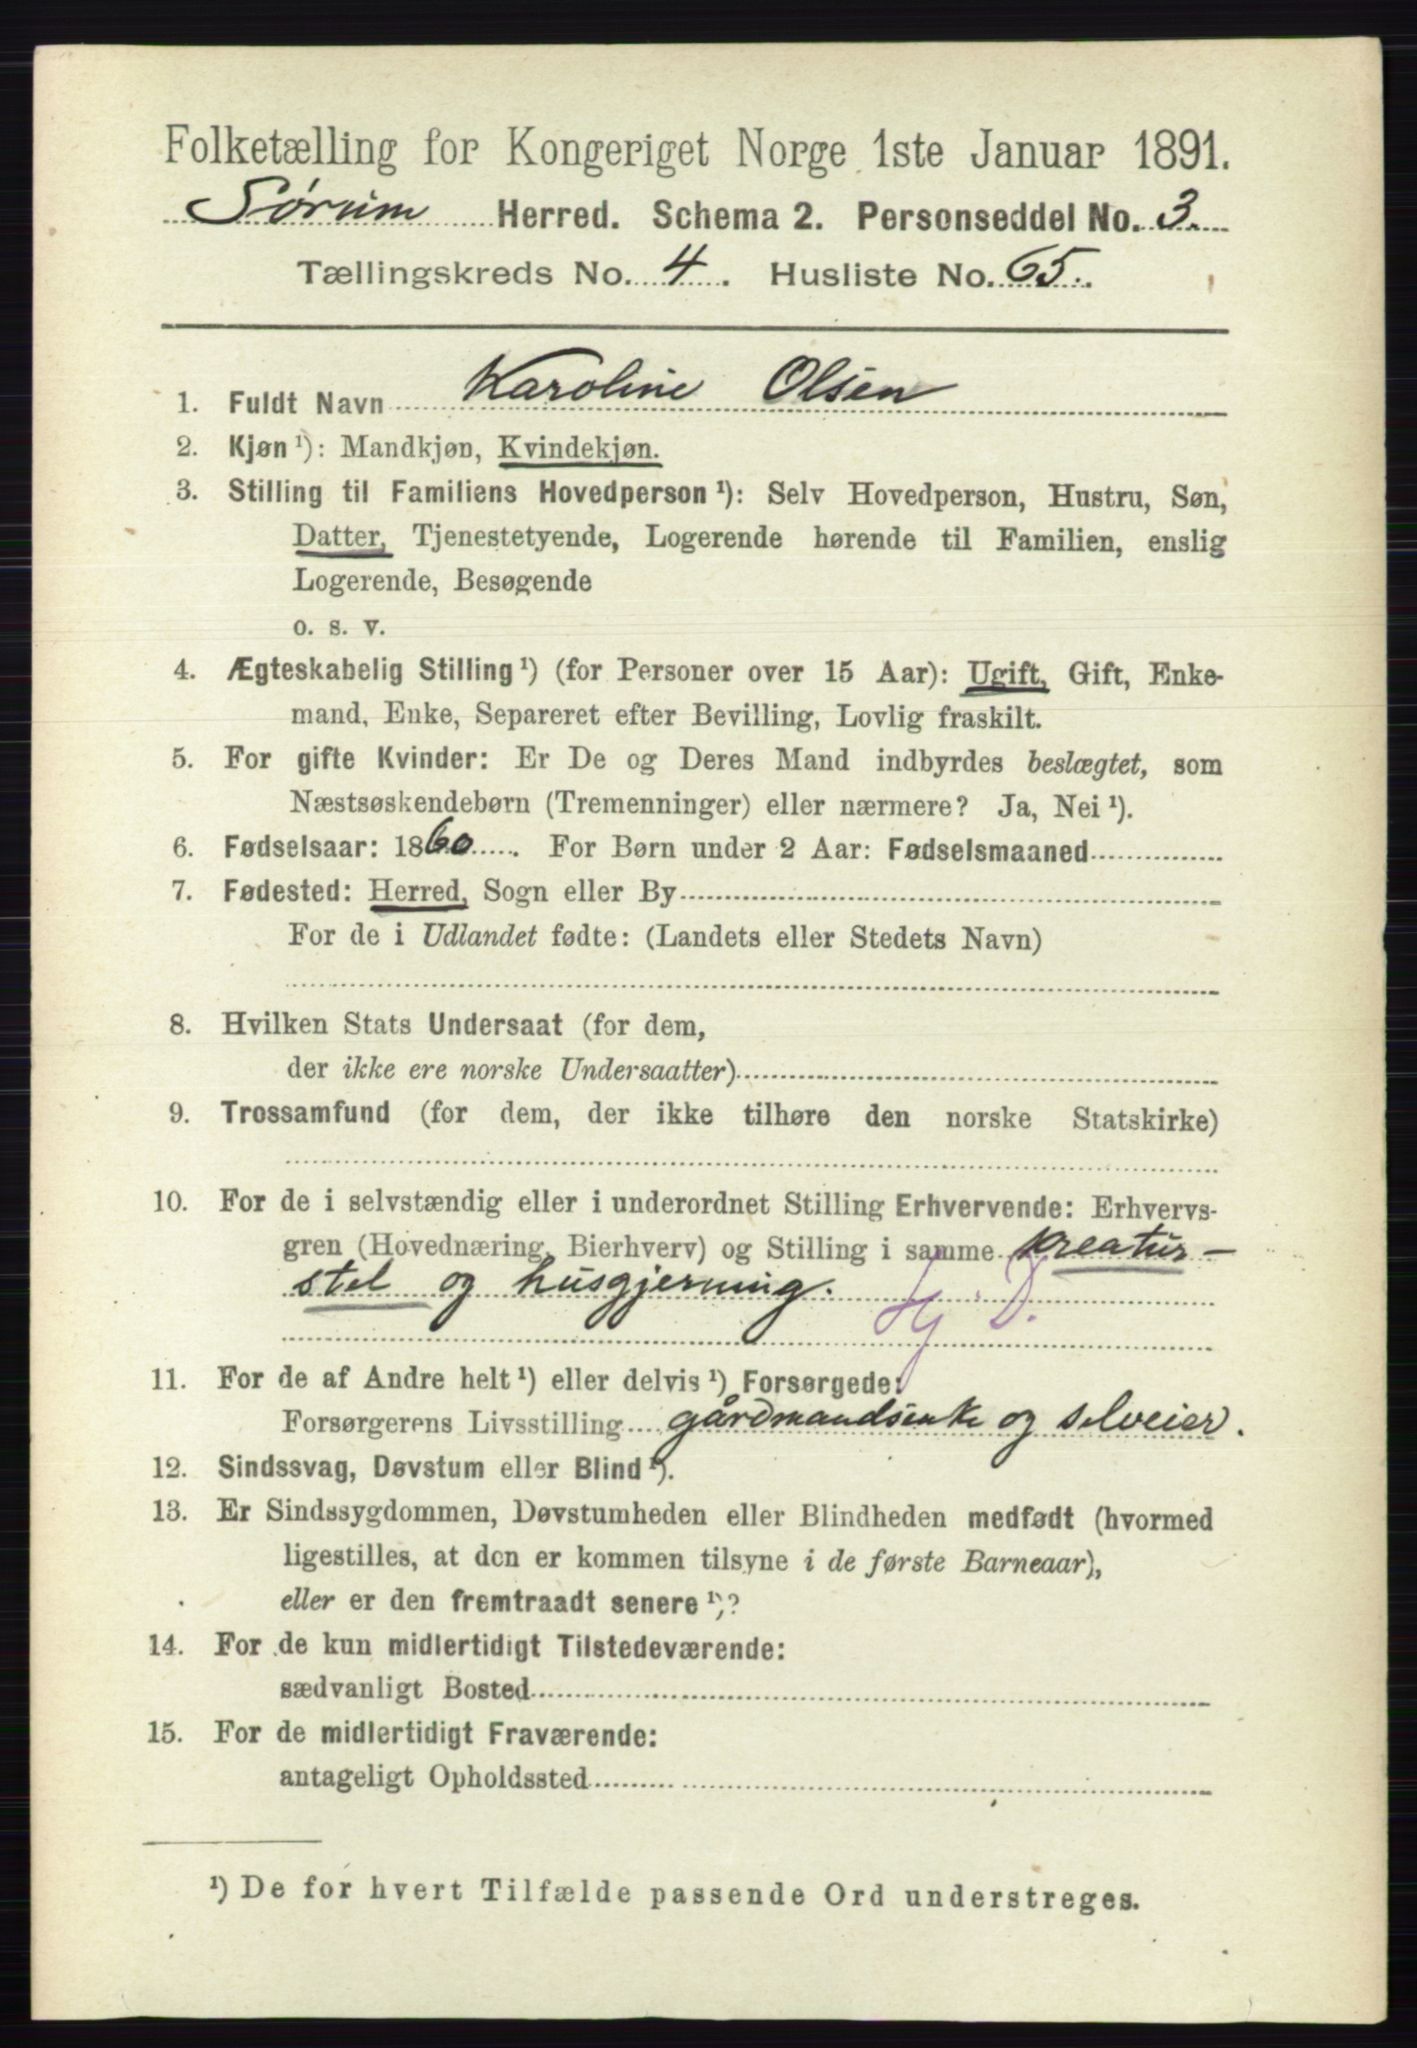 Folketælling for Kongeriget Norge 1ste Januar 1891.
Sørum Herred. Schema 2. Personseddel No. 3.
Tællingskreds No. 4. Husliste No. 65.
1. Fuldt Navn Karoline Olsen
2. Kjøn¹): Mandkjøn, Kvindekjøn.
3. Stilling til Familiens Hovedperson¹): Selv Hovedperson, Hustru, Søn,
Datter, Tjenestetyende, Logerende hørende til Familien, enslig
Logerende, Besøgende
o. s. v.
4. Ægteskabelig Stilling¹) (for Personer over 15 Aar): Ugift, Gift, Enke-
mand, Enke, Separeret efter Bevilling, Lovlig fraskilt.
5. For gifte Kvinder: Er De og Deres Mand indbyrdes beslægtet, som
Næstsøskendebørn (Tremenninger) eller nærmere? Ja, Nei¹).
6. Fødselsaar: 1860. For Børn under 2 Aar: Fødselsmaaned
7. Fødested: Herred, Sogn eller By
For de i Udlandet fødte: (Landets eller Stedets Navn)
8. Hvilken Stats Undersaat (for dem,
der ikke ere norske Undersaatter)
9. Trossamfund (for dem, der ikke tilhøre den norske Statskirke)
10. For de i selvstændig eller i underordnet Stilling Erhvervende: Erhvervs-
gren (Hovednæring, Bierhverv) og Stilling i samme kreatur-
stel og husgjerning. Hj. D.
11. For de af Andre helt¹) eller delvis¹) Forsørgede:
Forsørgerens Livsstilling gårdmandsenke og selveier.
12. Sindssvag, Døvstum eller Blind¹).
13. Er Sindssygdommen, Døvstumheden eller Blindheden medfødt (hvormed
ligestilles, at den er kommen tilsyne i de første Barneaar),
eller er den fremtraadt senere¹)?
14. For de kun midlertidigt Tilstedeværende:
sædvanligt Bosted
15. For de midlertidigt Fraværende:
antageligt Opholdssted
¹) De for hvert Tilfælde passende Ord understreges.